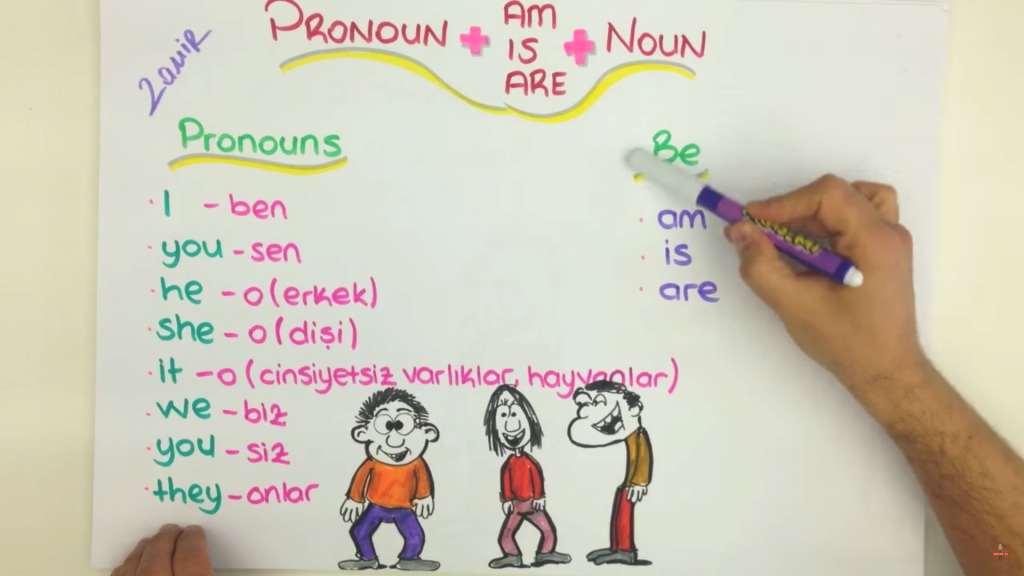 PRONOUN + AM IS ARE + NOUN
zamir
Pronouns
· I - ben
· you - sen
· he - o (erkek)
· she - o (dişi)
· it - o (cinsiyetsiz varlıklar, hayvanlar)
· we - biz
· you - siz
· they - onlar
Be
· am
· is
· are